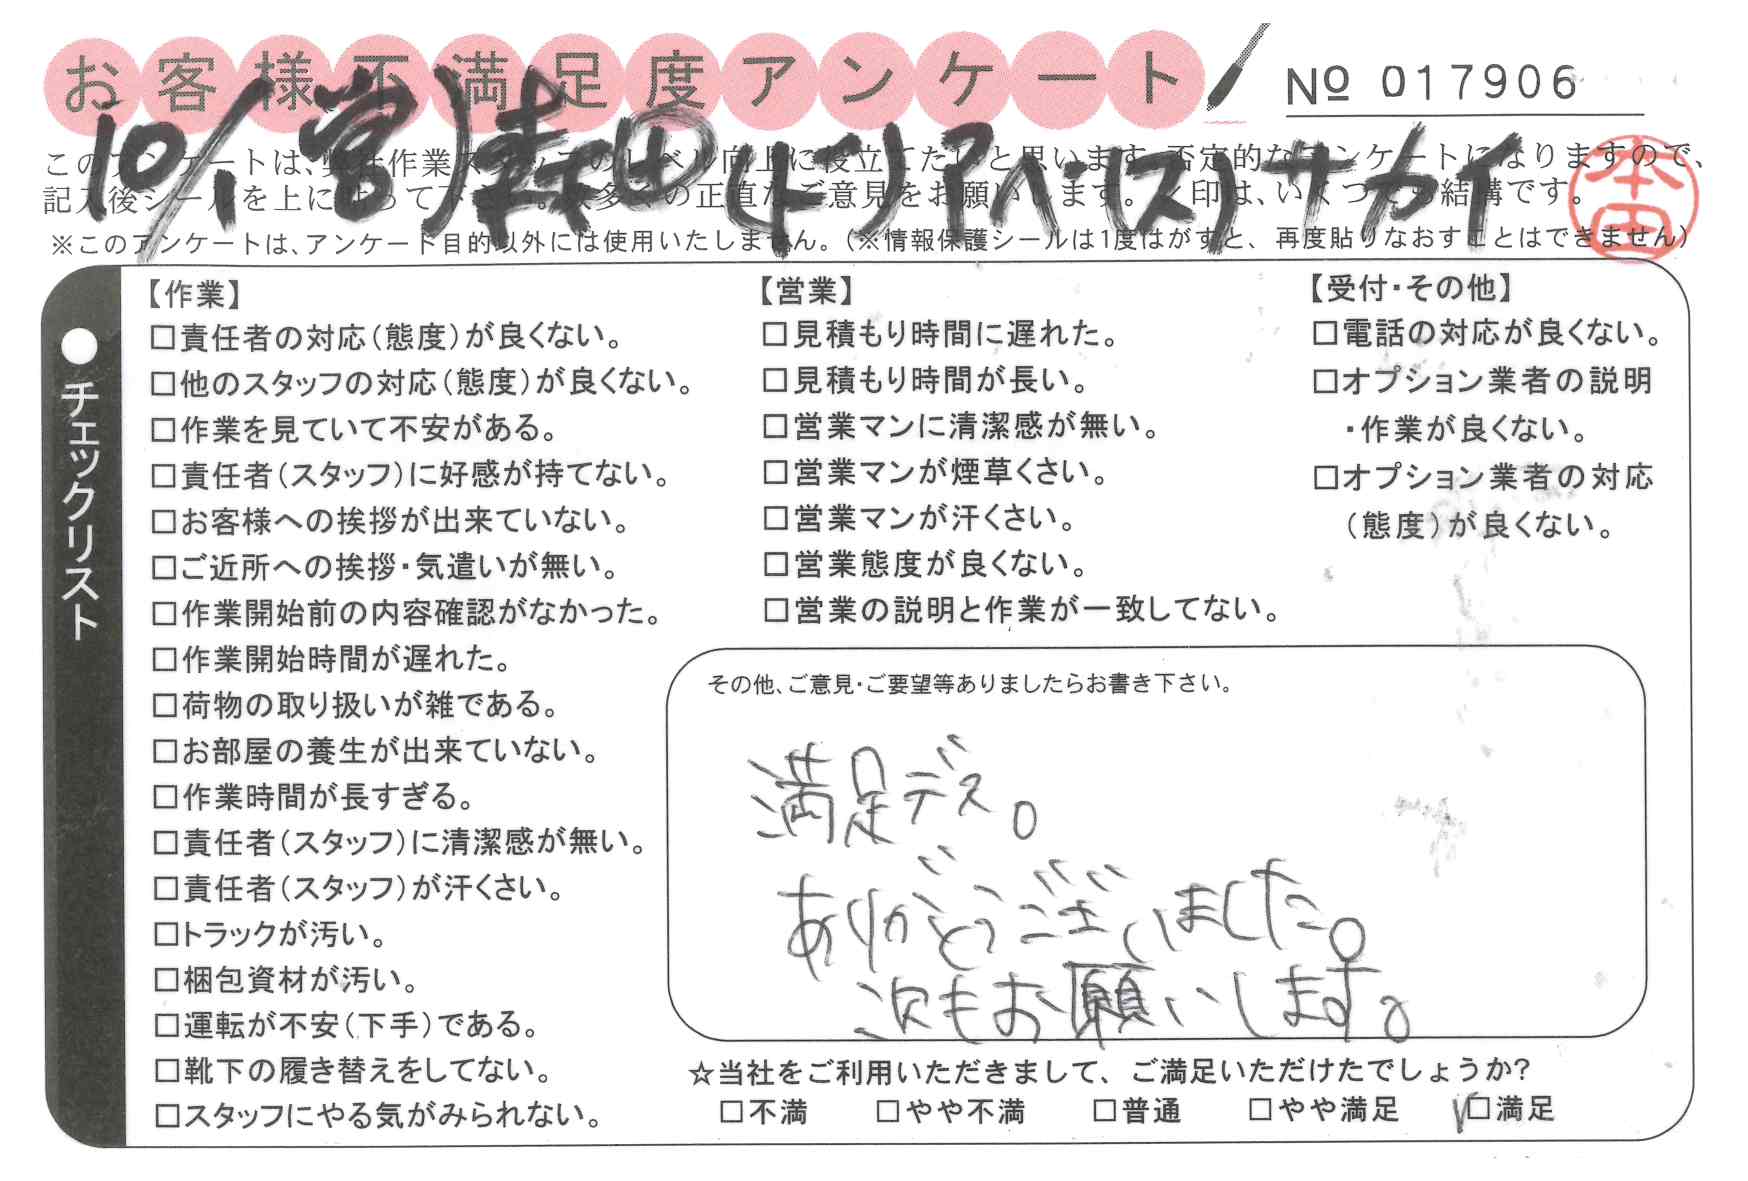 お客様不満足度アンケート
No 017906
10/1 営)森田(ド)アベ・(ス)サカイ
本田
このアンケートは、弊社作業スタッフのレベル向上に役立てたいと思います。否定的なアンケートになりますので、
記入後シールを上に貼って下さい。数多くの正直なご意見をお願いします。レ印は、いくつでも結構です。
※このアンケートは、アンケート目的以外には使用いたしません。(※情報保護シールは1度はがすと、再度貼りなおすことはできません)
●チェックリスト
【作業】
□責任者の対応(態度)が良くない。
□他のスタッフの対応(態度)が良くない。
□作業を見ていて不安がある。
□責任者(スタッフ)に好感が持てない。
□お客様への挨拶が出来ていない。
□ご近所への挨拶・気遣いが無い。
□作業開始前の内容確認がなかった。
□作業開始時間が遅れた。
□荷物の取り扱いが雑である。
□お部屋の養生が出来ていない。
□作業時間が長すぎる。
□責任者(スタッフ)に清潔感が無い。
□責任者(スタッフ)が汗くさい。
□トラックが汚い。
□梱包資材が汚い。
□運転が不安(下手)である。
□靴下の履き替えをしてない。
□スタッフにやる気がみられない。
【営業】
□見積もり時間に遅れた。
□見積もり時間が長い。
□営業マンに清潔感が無い。
□営業マンが煙草くさい。
□営業マンが汗くさい。
□営業態度が良くない。
□営業の説明と作業が一致してない。
【受付・その他】
□電話の対応が良くない。
□オプション業者の説明
・作業が良くない。
□オプション業者の対応
(態度)が良くない。
その他、ご意見・ご要望等ありましたらお書き下さい。
満足デス。
ありがとうございました。
次もお願いします。
☆当社をご利用いただきまして、ご満足いただけたでしょうか?
□不満 □やや不満 □普通 □やや満足 ✓□満足